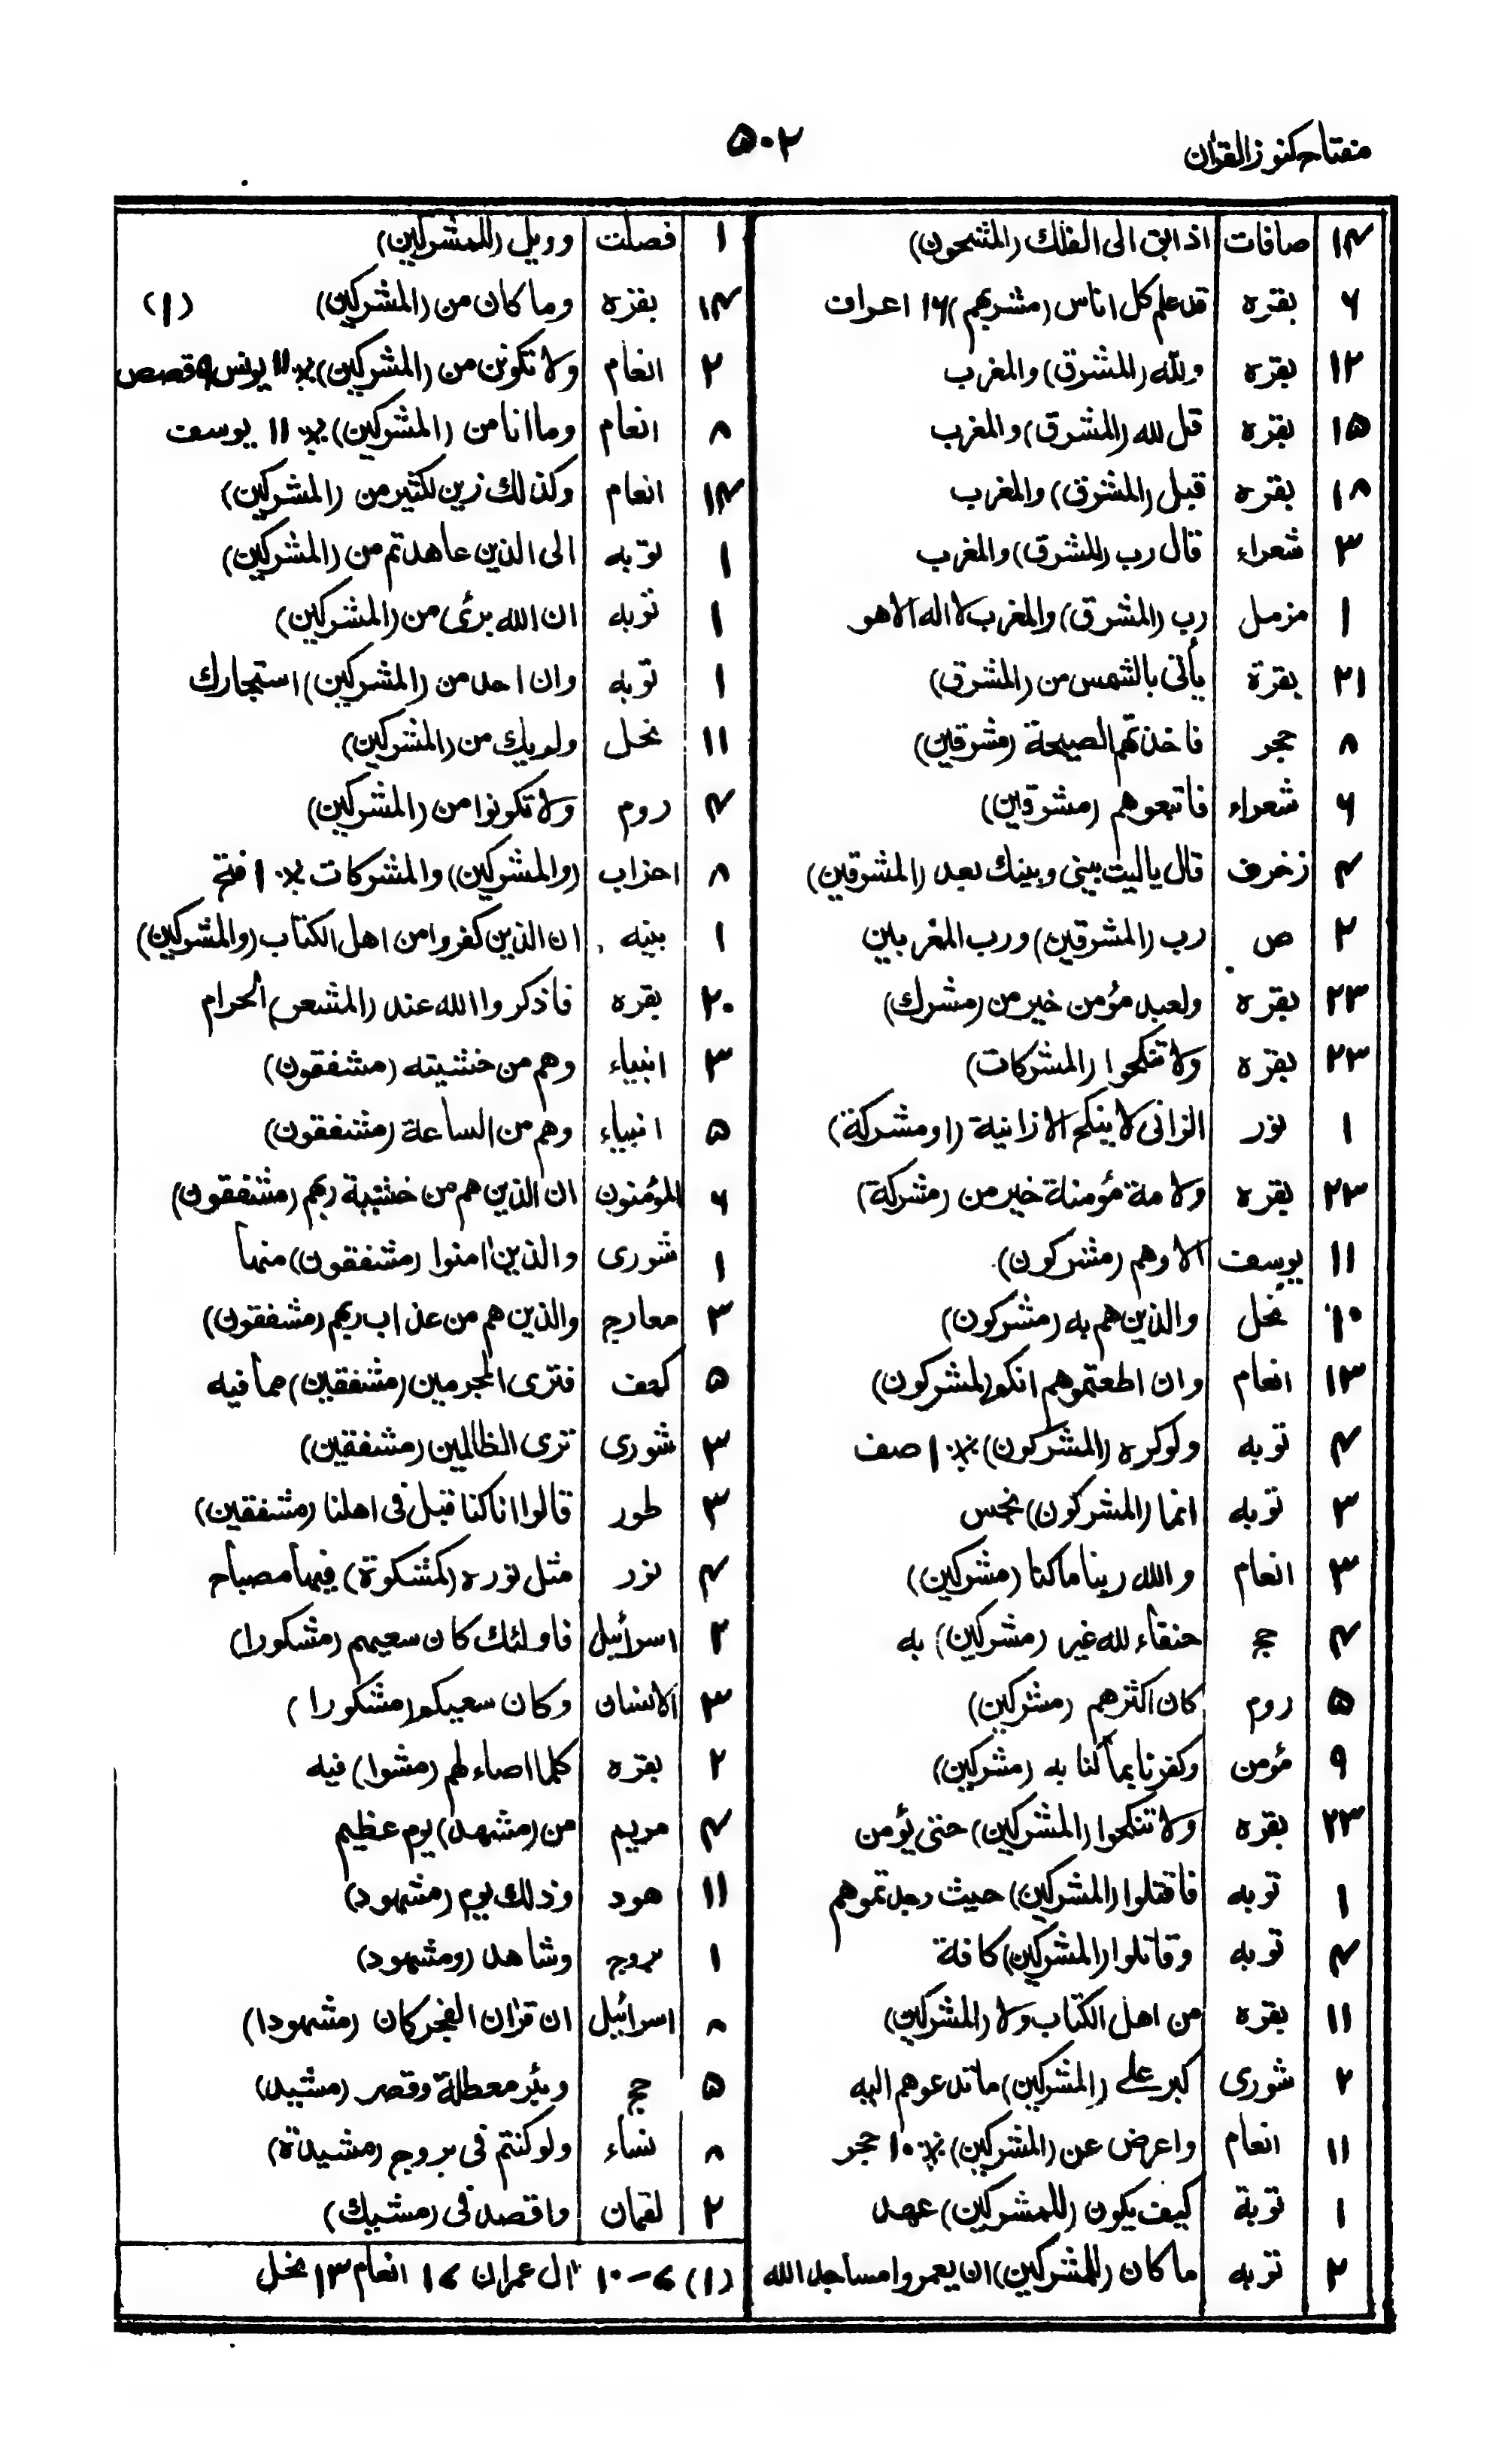 مفتاح كنوز القرآن
۵۰۲
۱۴ صافات اذ ابق الى الفلك (المشحون)
۶ بقره قد علم كل اناس (مشربهم) ۱۶ اعراف
۱۲ بقره ولله (المشرق) والمغرب
۱۵ بقره قل لله (المشرق) والمغرب
۱۸ بقره قبل (المشرق) والمغرب
۳ شعراء قال رب (المشرق) والمغرب
۱ مزمل رب (المشرق) والمغرب لا اله الا هو
۲۱ بقرة يأتى بالشمس من (المشرق)
۸ حجر فاخذتهم الصيحة (مشرقين)
۶ شعراء فاتبعوهم (مشرقين)
۴ زخرف قال ياليت بينى وبينك بعد (المشرقين)
۲ ص رب (المشرقين) ورب المغربين
۲۳ بقره ولعبد مؤمن خير من (مشرك)
۲۳ بقره ولا تنكحوا (المشركات)
۱ نور الزانى لا ينكح الا زانية (او مشركة)
۲۳ بقره ولامة مؤمنة خير من (مشركة)
۱۱ يوسف الا وهم (مشركون)
۱۰ نحل والذين هم به (مشركون)
۱۳ انعام وان اطعتموهم انكم (لمشركون)
۴ توبه ولو كره (المشركون) ٪ ۱ صف
۳ توبه انما (المشركون) نجس
۳ انعام والله ربنا ما كنا (مشركين)
۴ حج حنفاء لله غير (مشركين) به
۵ روم كان اكثرهم (مشركين)
۹ مؤمن وكفرنا بما كنا به (مشركين)
۲۳ بقره ولا تنكحوا (المشركين) حتى يؤمن
۱ توبه فاقتلوا (المشركين) حيث وجدتموهم
۴ توبه وقاتلوا (المشركين) كافة
۱۱ بقره من اهل الكتاب ولا (المشركين)
۲ شورى كبر على (المشركين) ما تدعوهم اليه
۱۱ انعام واعرض عن (المشركين) ٪ ۱۰ حجر
۱ توبة كيف يكون (للمشركين) عهد
۲ توبه ما كان (للمشركين) ان يعمروا مساجد الله
۱ فصلت وويل (للمشركين)
۱۴ بقره وما كان من (المشركين) (۱)
۲ انعام ولا تكونن من (المشركين) ٪ ۱۱ يونس ۹ قصص
۸ انعام وما انا من (المشركين) ٪ ۱۱ يوسف
۱۴ انعام وكذلك زين لكثير من (المشركين)
۱ توبه الى الذين عاهدتم من (المشركين)
۱ توبه ان الله برئ من (المشركين)
۱ توبه وان احد من (المشركين) استجارك
۱۱ نحل ولم يك من (المشركين)
۴ روم ولا تكونوا من (المشركين)
۸ احزاب (والمشركين) والمشركات ٪ ۱ فتح
۱ بينه ان الذين كفروا من اهل الكتاب (والمشركين)
۲۰ بقره فاذكروا الله عند (المشعر) الحرام
۳ انبياء وهم من خشيته (مشفقون)
۵ انبياء وهم من الساعة (مشفقون)
۶ المؤمنون ان الذين هم من خشية ربهم (مشفقون)
۱ شورى والذين امنوا (مشفقون) منها
۳ معارج والذين هم من عذاب ربهم (مشفقون)
۵ كهف فترى المجرمين (مشفقين) مما فيه
۳ شورى ترى الظالمين (مشفقين)
۳ طور قالوا انا كنا قبل فى اهلنا (مشفقين)
۴ نور مثل نوره (كمشكوة) فيها مصباح
۲ اسرائيل فاولئك كان سعيهم (مشكورا)
۳ الانسان وكان سعيكم (مشكورا)
۲ بقره كلما اضاء لهم (مشوا) فيه
۴ مريم من (مشهد) يوم عظيم
۱۱ هود وذلك يوم (مشهود)
۱ بروج وشاهد (ومشهود)
۸ اسرائيل ان قرأن الفجر كان (مشهودا)
۵ حج وبئر معطلة وقصر (مشيد)
۸ نساء ولو كنتم فى بروج (مشيدة)
۲ لقمان واقصد فى (مشيك)
(۱) ۶-۱۰ آل عمران ۱۶ انعام ۱۳ نحل